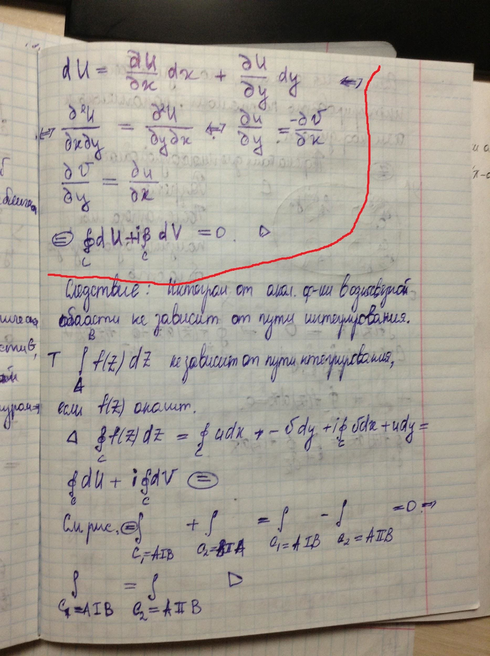 dU = ∂U/∂x dx + ∂U/∂y dy ⇔
⇔ ∂²U/∂x∂y = ∂²U/∂y∂x ⇔ ∂u/∂y = -∂v/∂x
∂v/∂y = ∂u/∂x
⊜ ∮_C dU + i∮_C dV = 0. ▷
Следствие: Интеграл от анал. ф-ии в односвязной
области не зависит от пути интегрирования.
Т ∫_A^B f(z) dz не зависит от пути интегрирования,
если f(z) аналит.
Δ ∮_C f(z) dz = ∮_C udx + -vdy + i∮_C vdx + udy =
∮_C dU + i∮_C dV ⊜
См рис. ⊜ ∫_{C₁=AIB} + ∫ = ∫_{C₁=AIB} - ∫_{C₂=AIIB} = 0 ⇒
∫_{C₁=AIB} = ∫_{C₂=AIIB} ▷